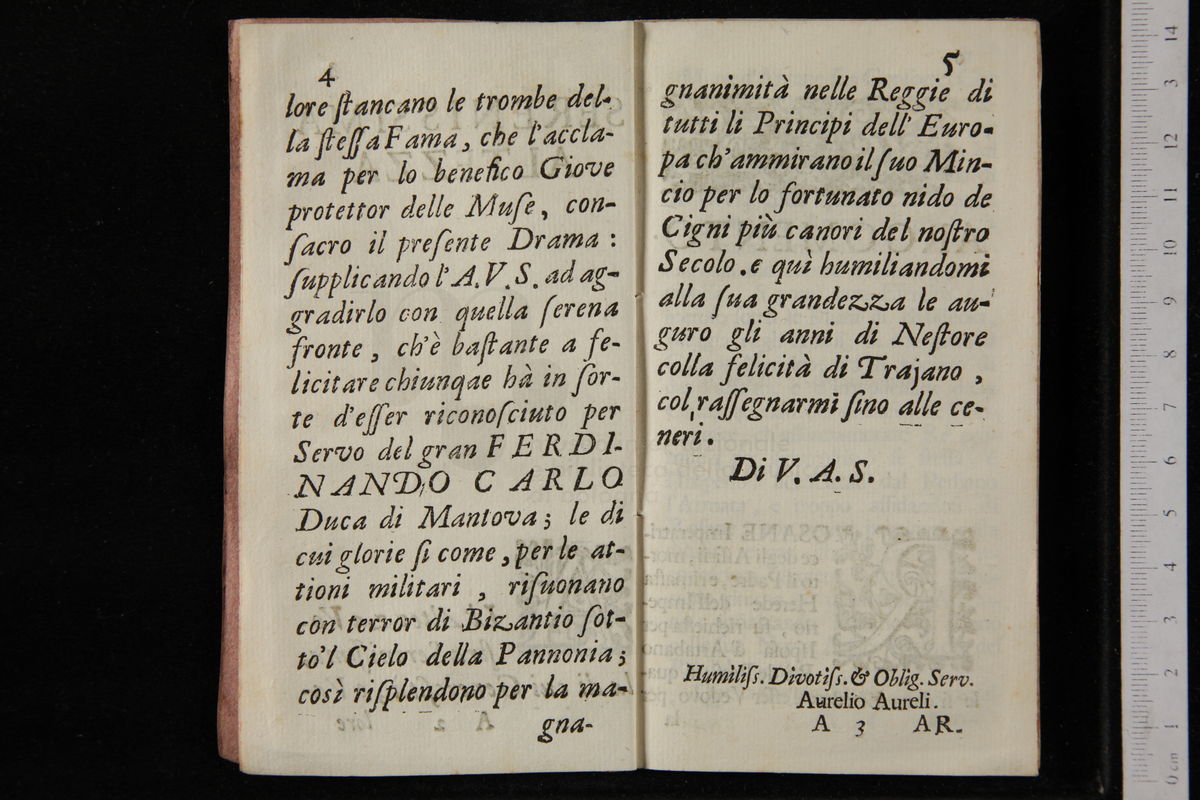 4
lore ſtancano le trombe del-
la ſteſſa Fama, che l'accla-
ma per lo benefico Giove
protettor delle Muſe, con-
ſacro il preſente Drama:
ſupplicando l'A.V.S. ad ag-
gradirlo con quella ſerena
fronte, ch'è baſtante a fe-
licitare chiunqae hà in ſor-
te d'eſſer riconoſciuto per
Servo del gran FERDI-
NANDO CARLO
Duca di Mantova; le di
cui glorie ſi come, per le at-
tioni militari, riſuonano
con terror di Bizantio ſot-
to'l Cielo della Pannonia;
così riſplendono per la ma-
gna-
5
gnanimità nelle Reggie di
tutti li Principi dell' Euro-
pa ch'ammirano il ſuo Min-
cio per lo fortunato nido de
Cigni più canori del noſtro
Secolo. e quì humiliandomi
alla ſua grandezza le au-
guro gli anni di Neſtore
colla felicità di Trajano,
col raſſegnarmi ſino alle ce-
neri.
Di V. A. S.
Humiliſs. Divotiſs. & Oblig. Serv.
Aurelio Aureli.
A 3 AR.
14
3
12
11
10
9
8
7
6
5
4
3
2
1
0 cm